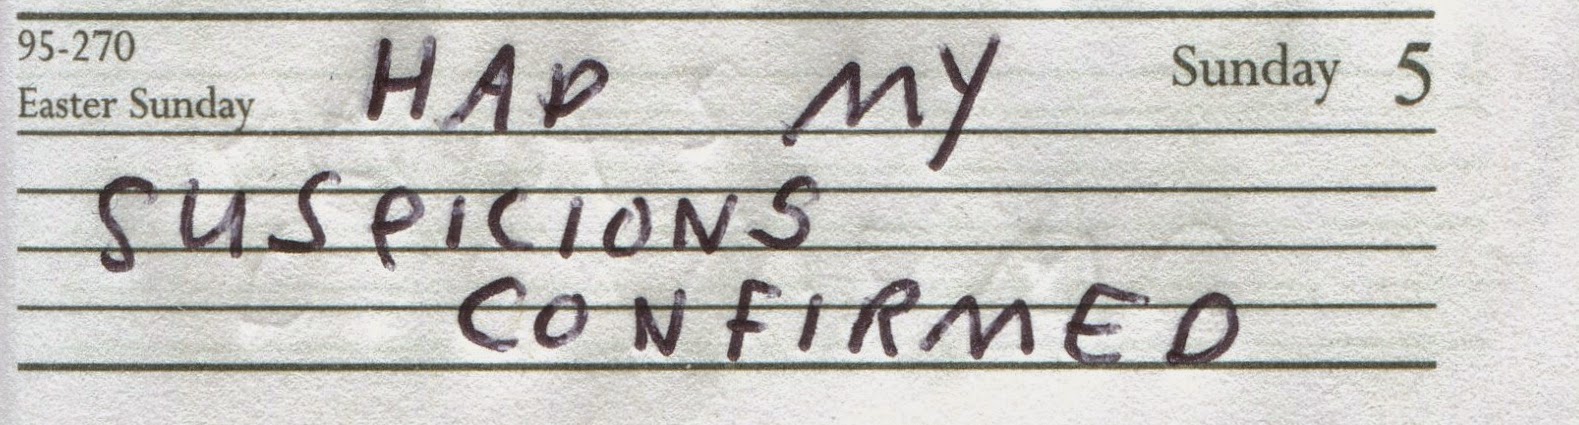 95-270 HAD MY Sunday 5
Easter Sunday
SUSPICIONS
CONFIRMED